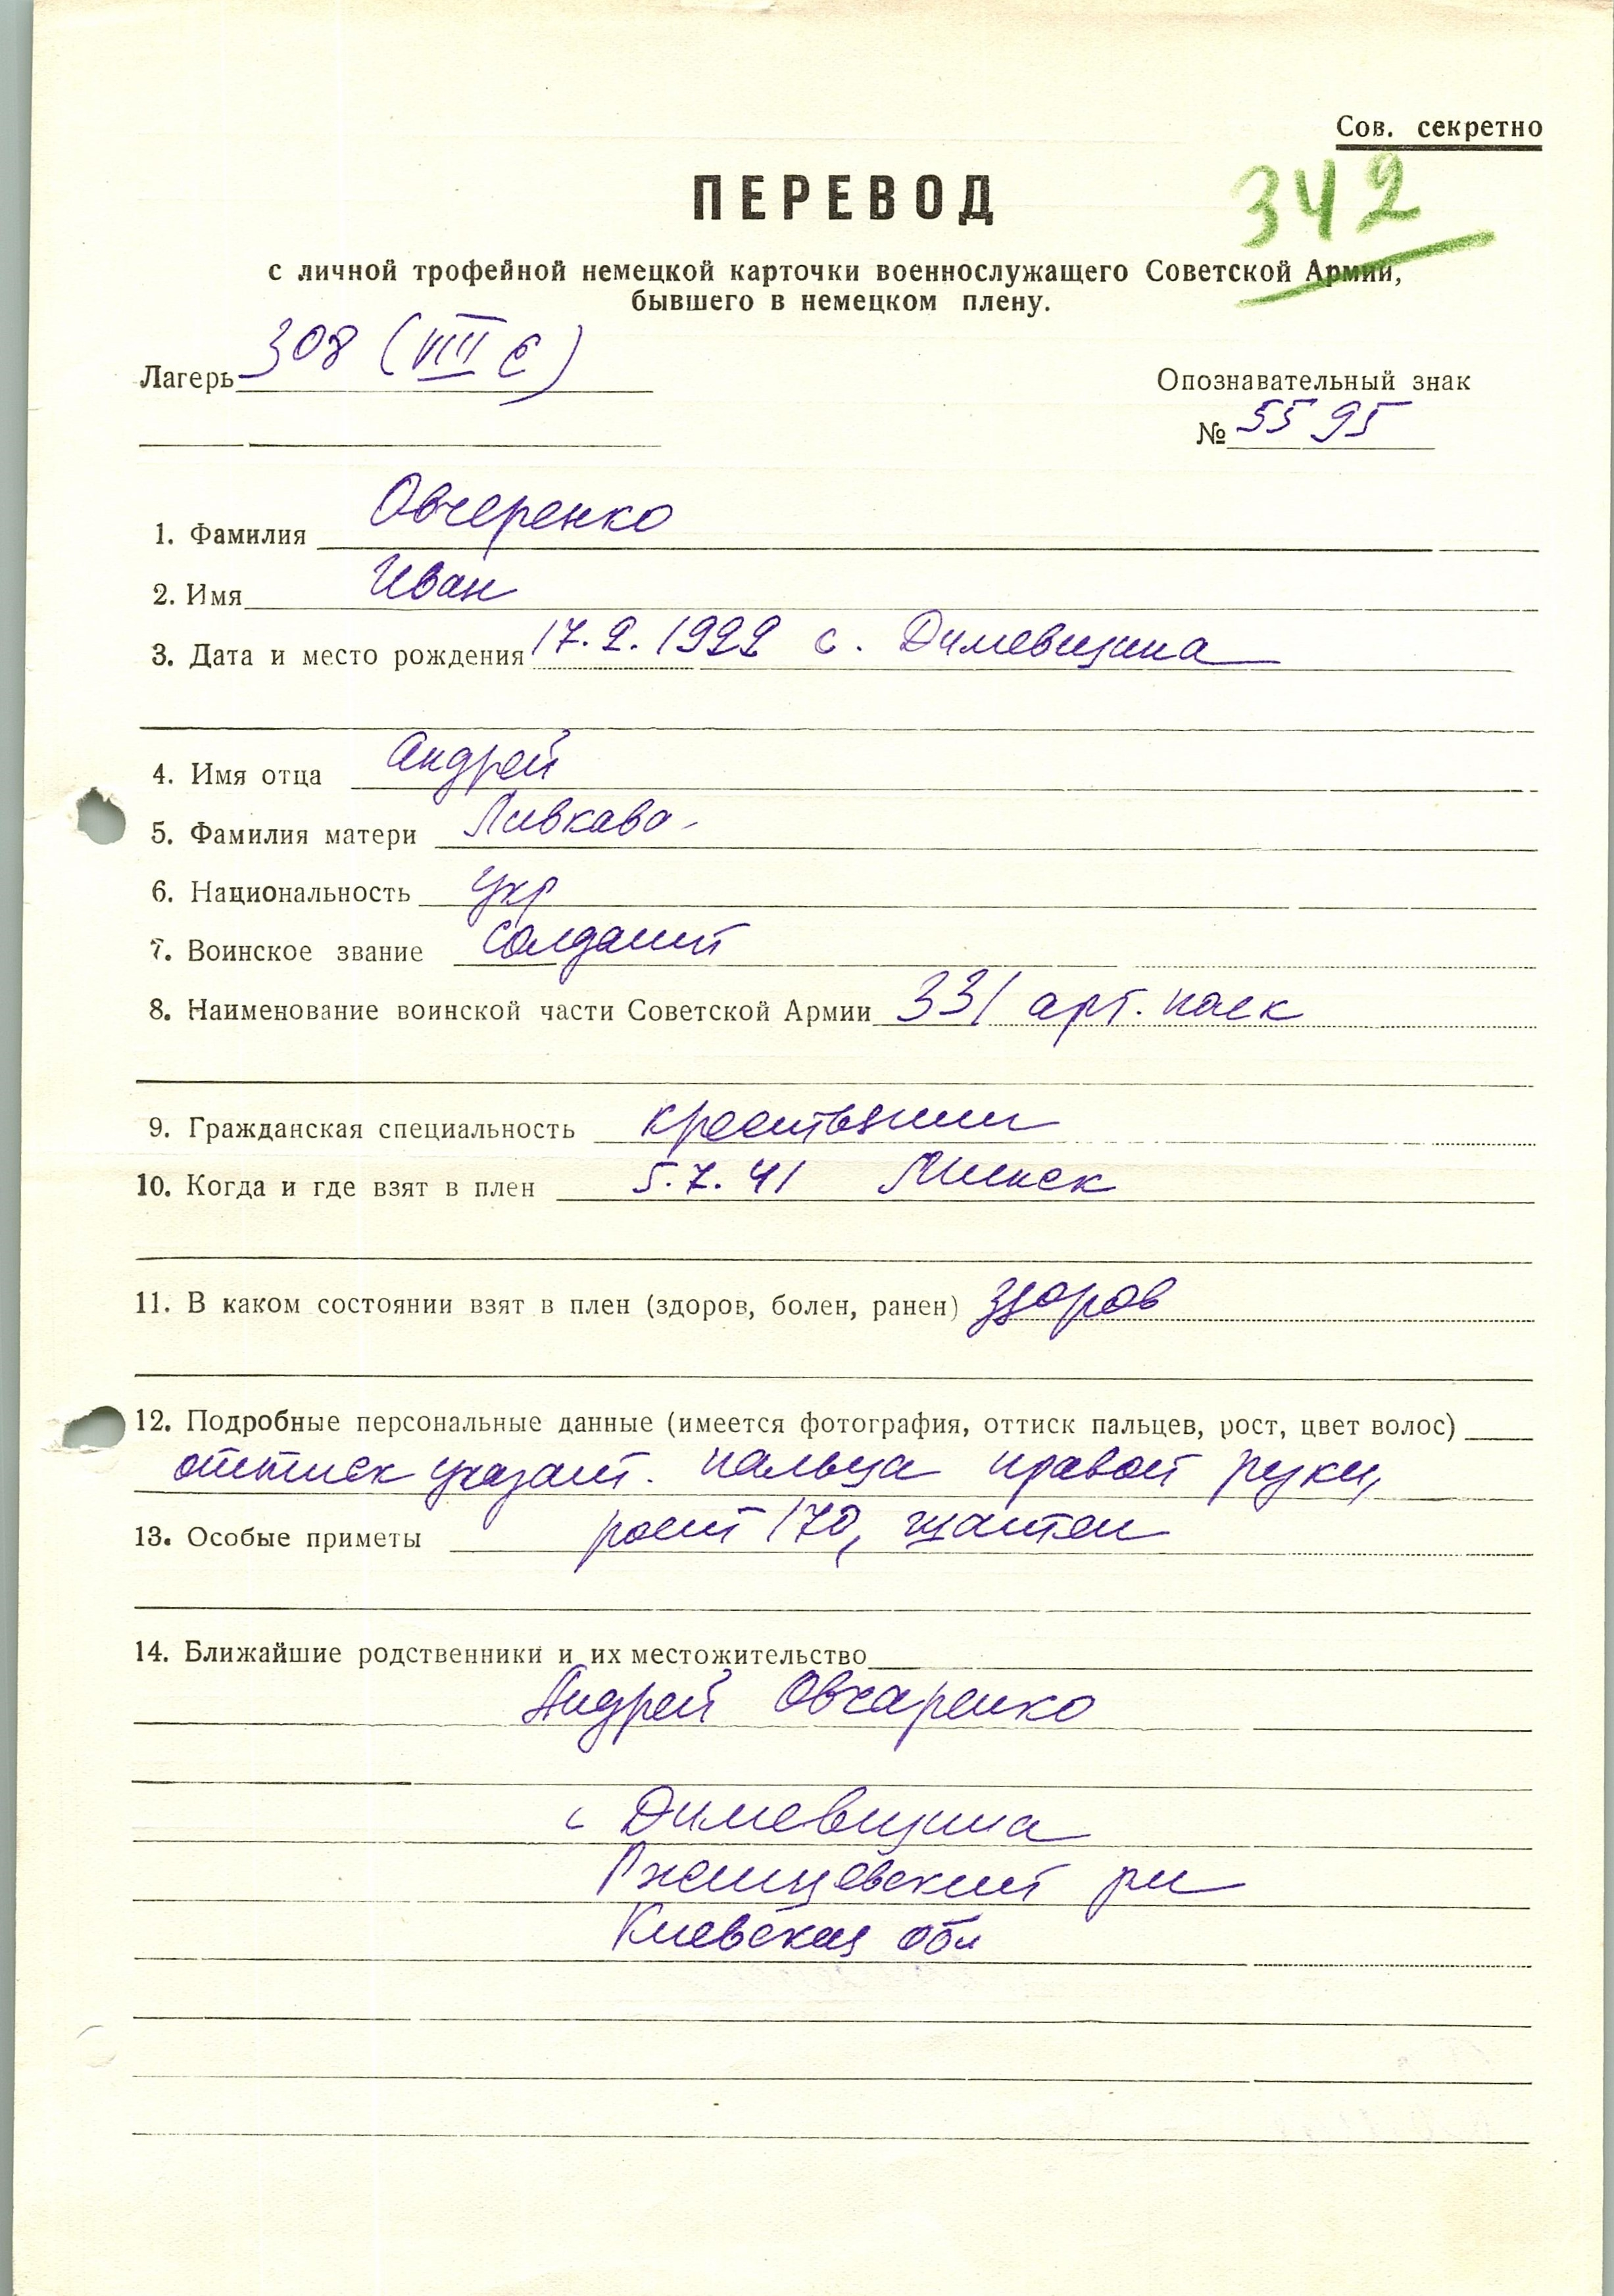 Сов. секретно
ПЕРЕВОД
342
с личной трофейной немецкой карточки военнослужащего Советской Армии,
бывшего в немецком плену.
Лагерь 308 (VIII E)
Опознавательный знак
№ 5595
1. Фамилия Овчеренко
2. Имя Иван
3. Дата и место рождения 17.2.1922 с. Димевщина
4. Имя отца Андрей
5. Фамилия матери Пивкава
6. Национальность укр
7. Воинское звание солдат
8. Наименование воинской части Советской Армии 331 арт. полк
9. Гражданская специальность
10. Когда и где взят в плен 5.7.41 Минск
11. В каком состоянии взят в плен (здоров, болен, ранен) здоров
12. Подробные персональные данные (имеется фотография, оттиск пальцев, рост, цвет волос)
оттиск указат. пальца правой руки,
13. Особые приметы рост 170, шатен
14. Ближайшие родственники и их местожительство
Андрей Овчаренко
с Димевщина
рн
Киевская обл